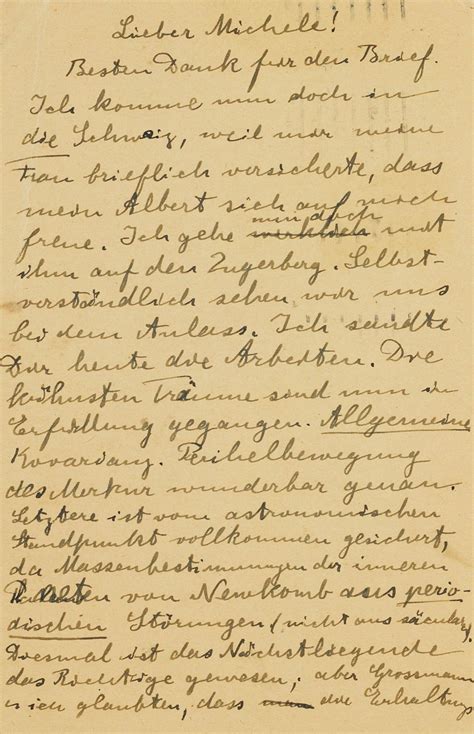 Lieber Michele!
Besten Dank für den Brief.
Ich komme nun doch in
die Schweiz, weil mir meine
Frau brieflich versicherte, dass
mein Albert sich auf mich
nun doch
freue. Ich gehe wirklich mit
ihm auf den Zugerberg. Selbst-
verständlich sehen wir uns
bei dem Anlass. Ich sandte
Dir heute die Arbeiten. Die
kühnsten Träume sind nun in
Erfüllung gegangen. Allgemeine
Kovarianz. Perihelbewegung
des Merkur wunderbar genau.
Letztere ist vom astronomischen
Standpunkt vollkommen gesichert,
da Massenbestimmungen der inneren
Planeten von Newkomb aus perio-
dischen Störungen (nicht aus säcular.).
Diesmal ist das Nächstliegende
das Richtige gewesen; aber Grossmann
u ich glaubten, dass man die Erhaltungs